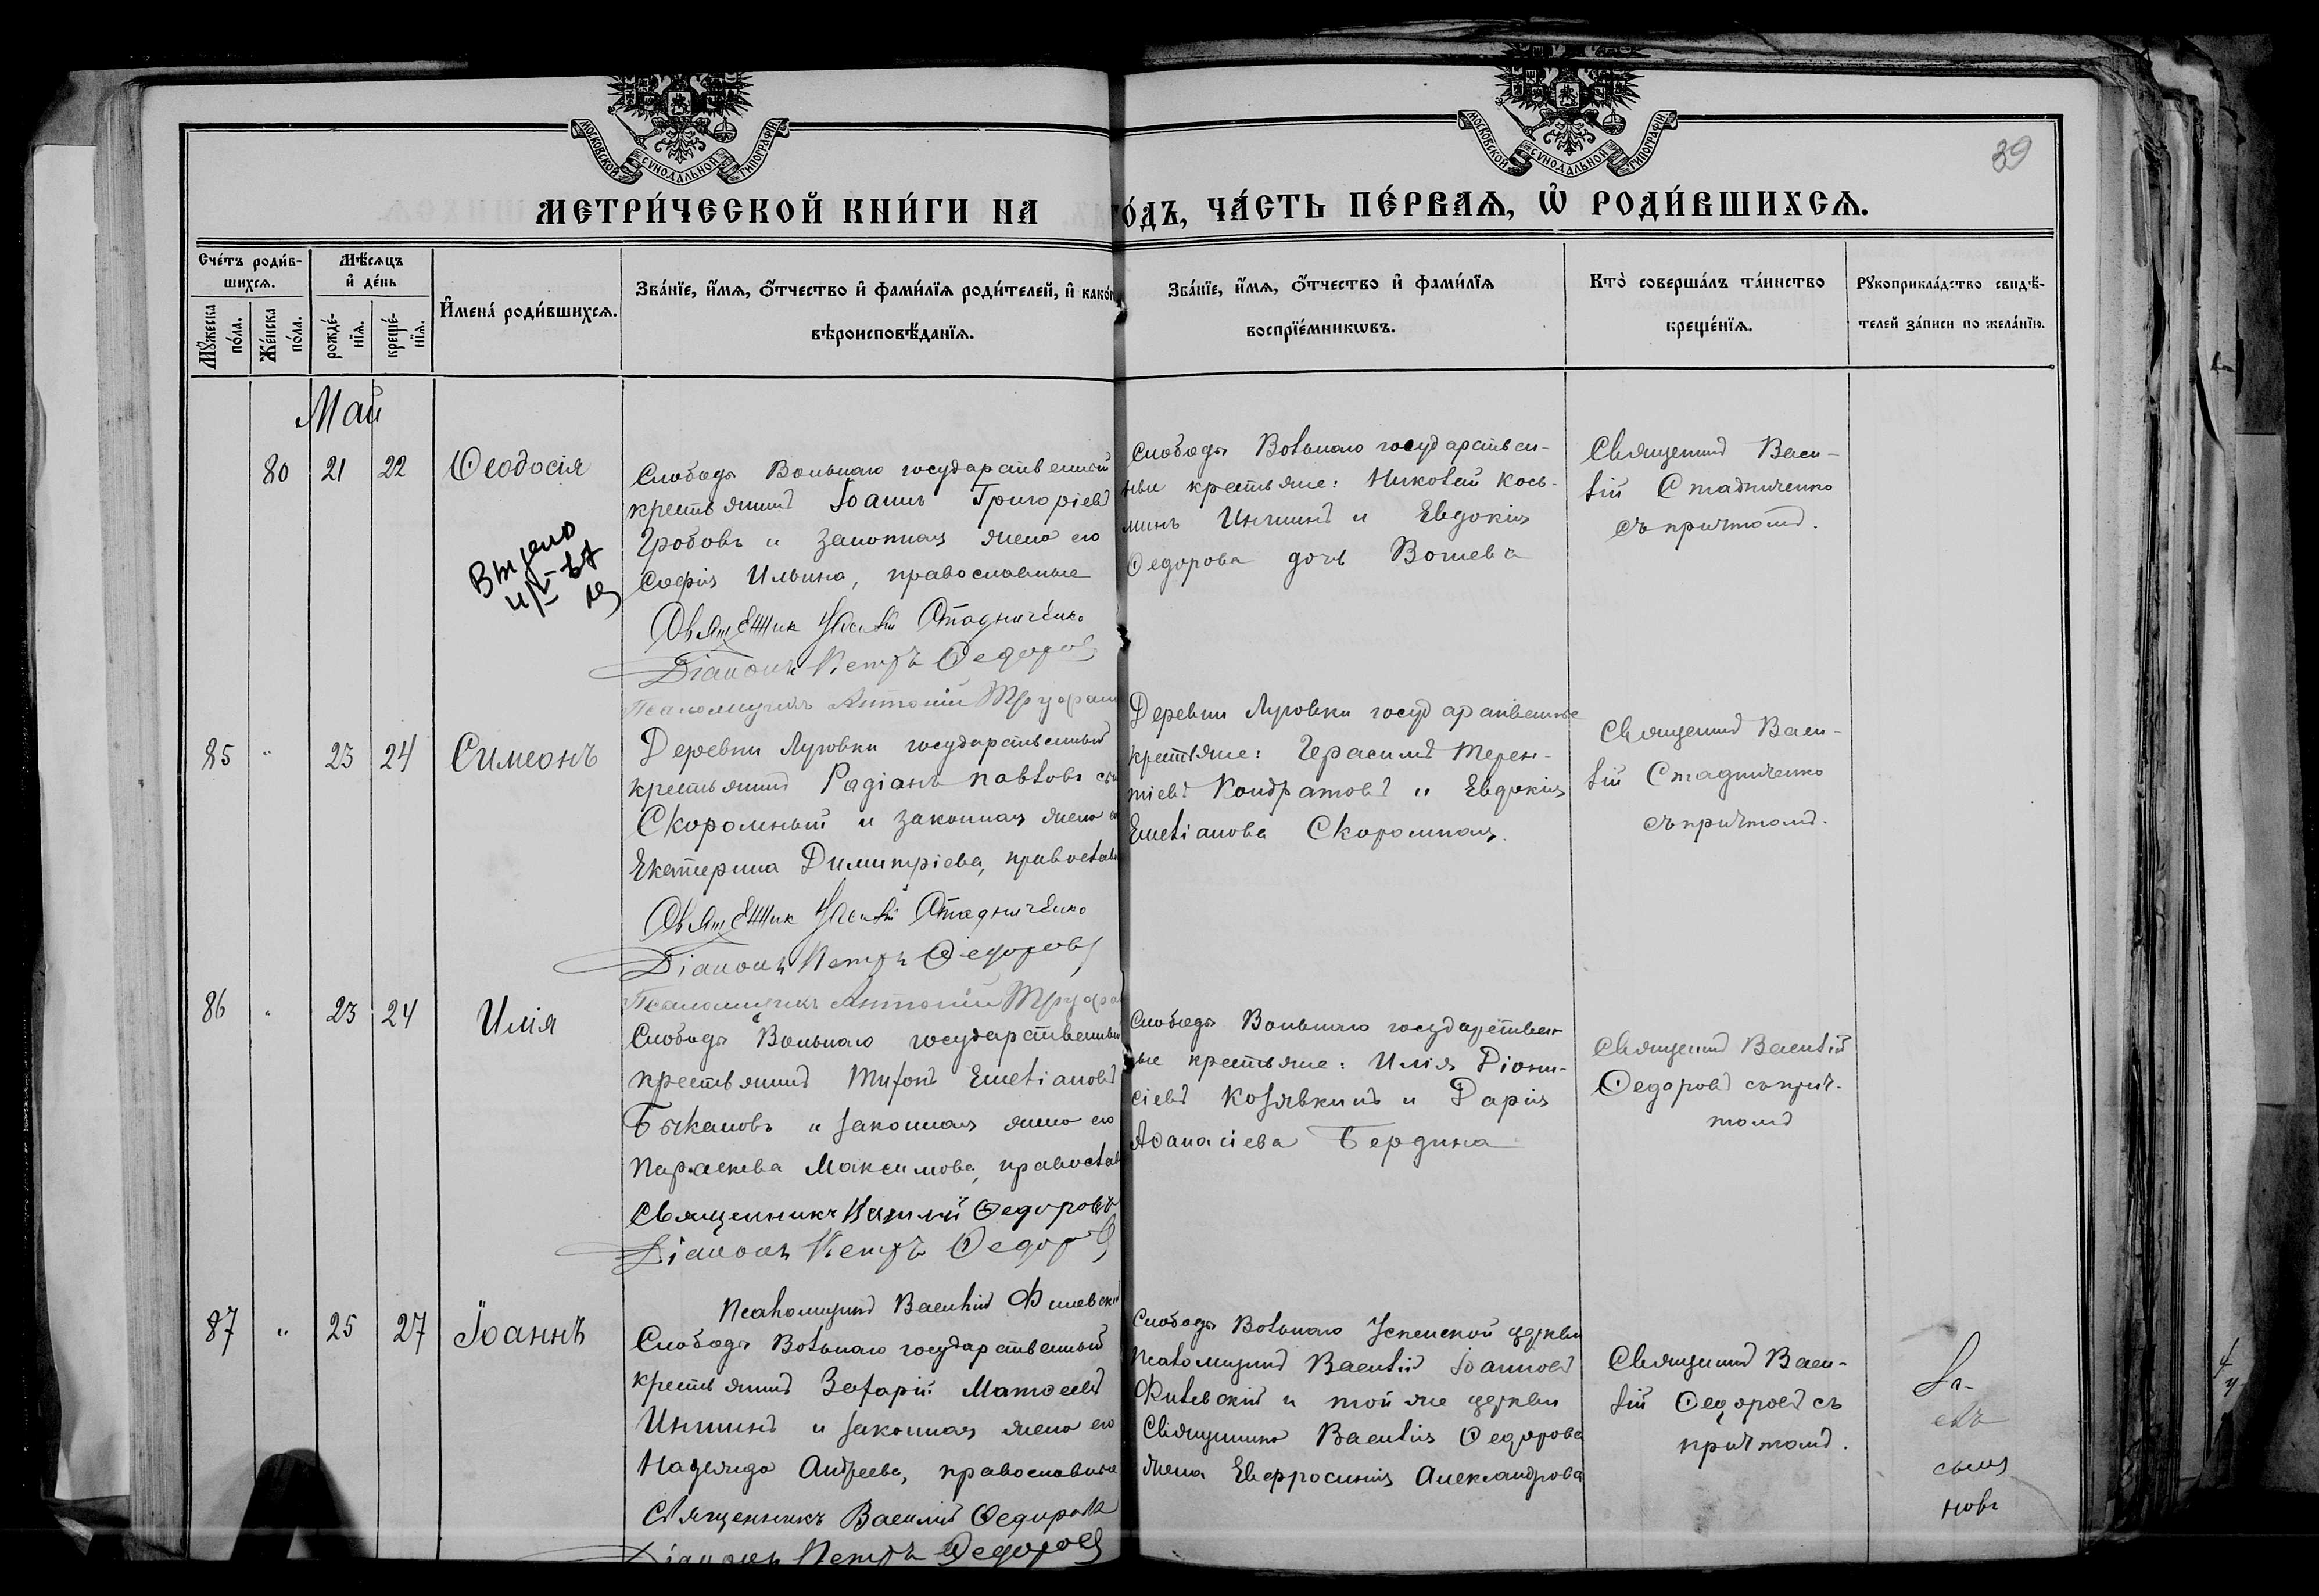 МОСКОВСКОЙ СѴНОДАЛЬНОЙ ТИПОГРАФІИ
МОСКОВСКОЙ СѴНОДАЛЬНОЙ ТИПОГРАФІИ
39
МЕТРИ́ЧЕСКОЙ КНИ́ГИ НА
ГО́ДЪ, ЧА́СТЬ ПЕ́РВАѦ, Ѡ҆ РОДИ́ВШИХСѦ.
Сче́тъ роди́в-
шихсѧ.
Мꙋжеска
по́ла.
Же́нска
по́ла.
Мѣ́сѧцъ
и҆ де́нь
рожде́-
нїѧ.
креще́-
нїѧ.
И҆мена́ роди́вшихсѧ.
Зва́нїе, и҆́мѧ, ѻ҆́тчество и҆ фами́лїѧ роди́телей, и҆ како́гѡ
вѣроисповѣ́данїѧ.
Зва́нїе, и҆́мѧ, ѻ҆́тчество и҆ фами́лїѧ
воспрїе́мникѡвъ.
Кто̀ соверша́лъ та́инство
креще́нїѧ.
Рꙋкоприкла́дство свидѣ́-
телей за́писи по жела́нїю.
Май
80 21 22 Ѳеодосія
Слободы Вольнаго государственный
крестьянинъ Іоаннъ Григоріевъ
Гробовъ и законная жена его
Софія Ильина, православные
Священник Василій Стадниченко
Діаконъ Петръ Ѳедоровъ
Псаломщикъ Антоній
Слободы Вольнаго государствен-
ные крестьяне: Николай Кось-
минъ Иншинъ и Евдокія
Ѳедорова дочь
Священникъ Васи-
лій Стадниченко
съ причтомъ.
85 " 23 24 Симеонъ
Деревни Луговки государственный
крестьянинъ Радіанъ Павловъ сынъ
Скоромный и законная жена его
Екатерина Димитріева, православ
Священник Василій Стадниченко
Діаконъ Петръ Ѳедоровъ
Псаломщикъ Антоній
Деревни Луговки государственные
крестьяне: Герасимъ Терен-
тіевъ Кондратовъ и Евдокія
Емеліанова Скоромная.
Священникъ Васи-
лій Стадниченко
съ причтомъ.
86 " 23 24 Илія
Слободы Вольнаго государственный
крестьянинъ Тифонъ Емеліановъ
Быкановъ и законная жена его
Параскева Максимова, православ
Священникъ Василій Ѳедоровъ
Діаконъ Петръ Ѳедоровъ
Псаломщикъ Василій
Слободы Вольнаго государствен-
ные крестьяне: Илія Діони-
сіевъ Козявкинъ и Дарія
Аѳанасіева Бердина
Священникъ Василій
Ѳедоровъ съ прич-
томъ
87 " 25 27 Іоаннъ
Слободы Вольнаго государственный
крестьянинъ Захарій Матѳеевъ
Иншинъ и законная жена его
Надежда Андреева, православные
Священникъ Василій Ѳедоровъ
Діаконъ Петръ Ѳедоровъ
Слободы Вольнаго Успенской церкви
Псаломщикъ Василій Іоанновъ
и той же церкви
Священника Василія Ѳедорова
жена Евфросинія Александрова
Священникъ Васи-
лій Ѳедоровъ съ
причтомъ.